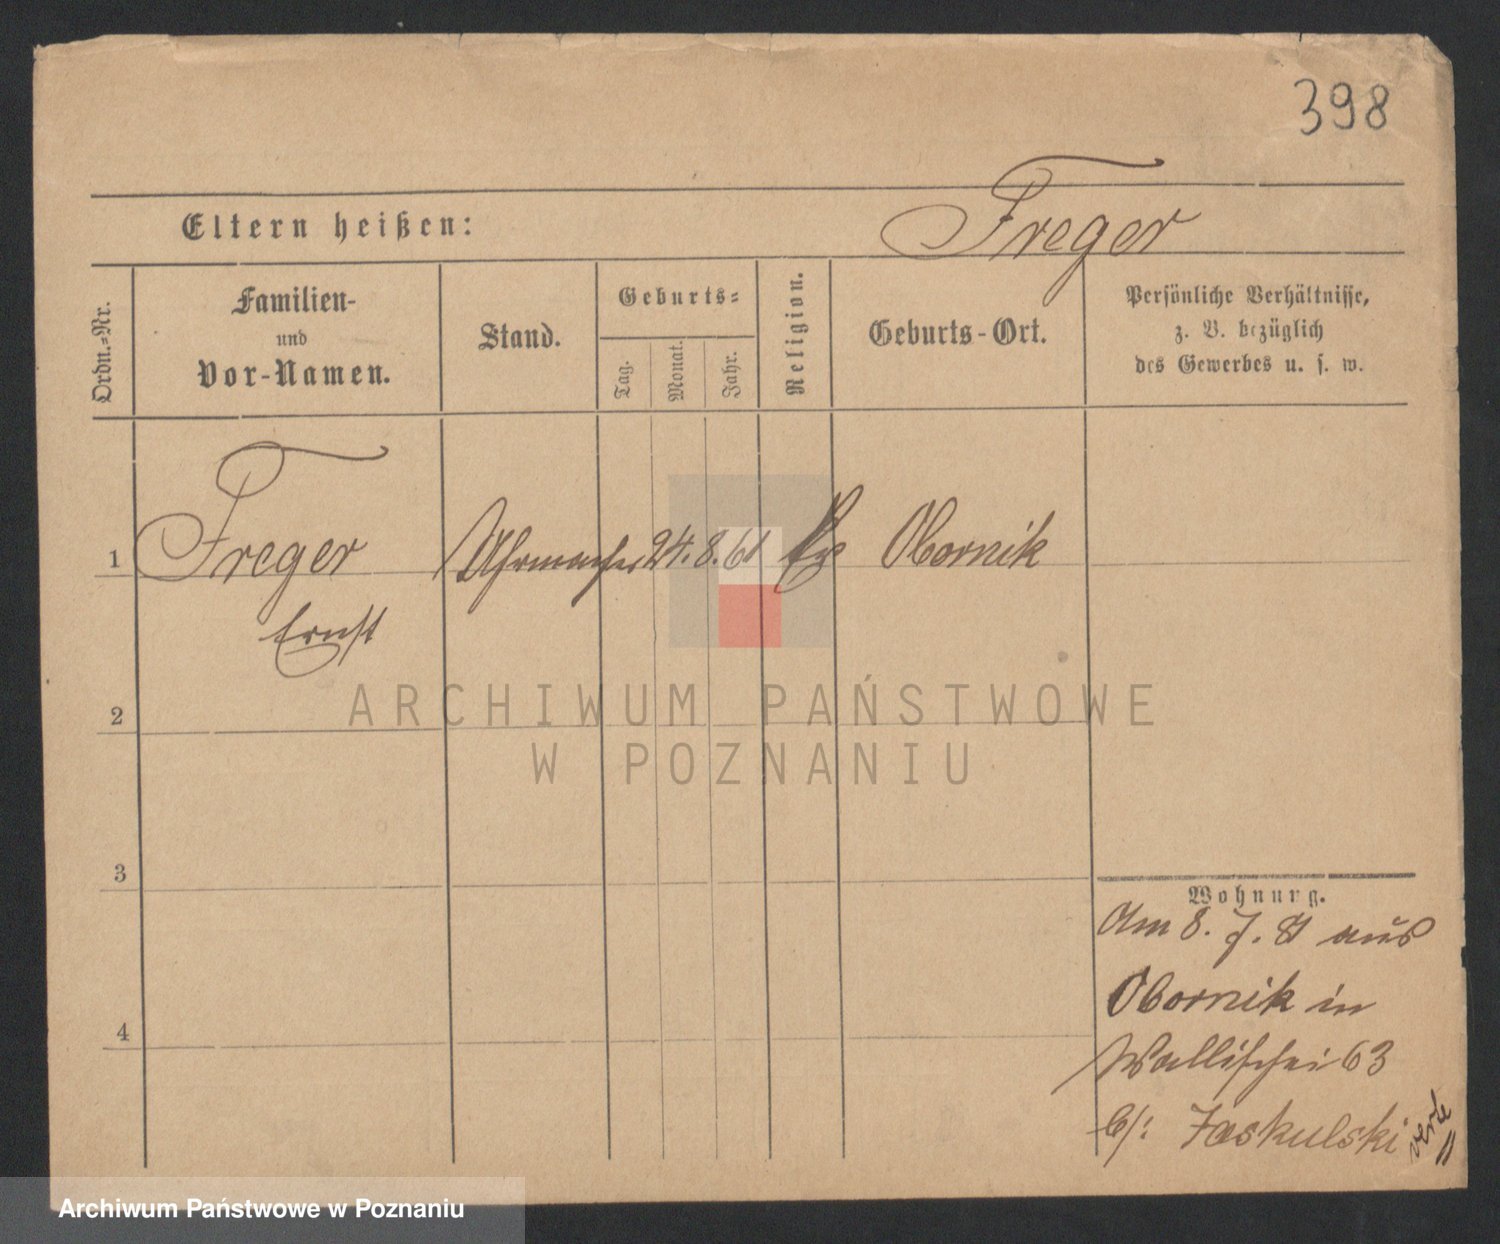 398
Eltern heißen: Freger
Ordn.-Nr.
Familien-
und
Vor-Namen.
Stand.
Geburts-
Tag.
Monat.
Jahr.
Religion.
Geburts-Ort.
Persönliche Verhältnisse,
z. B. bezüglich
des Gewerbes u. s. w.
1 Freger Uhrmacher 24. 8. 61 Obornik
Ernst
2
3
4
Wohnung.
Am 8. 7. 81 aus
Obornik in
Wallischei 63
b/: Jaskulski
verte
ARCHIWUM PAŃSTWOWE
W POZNANIU
Archiwum Państwowe w Poznaniu